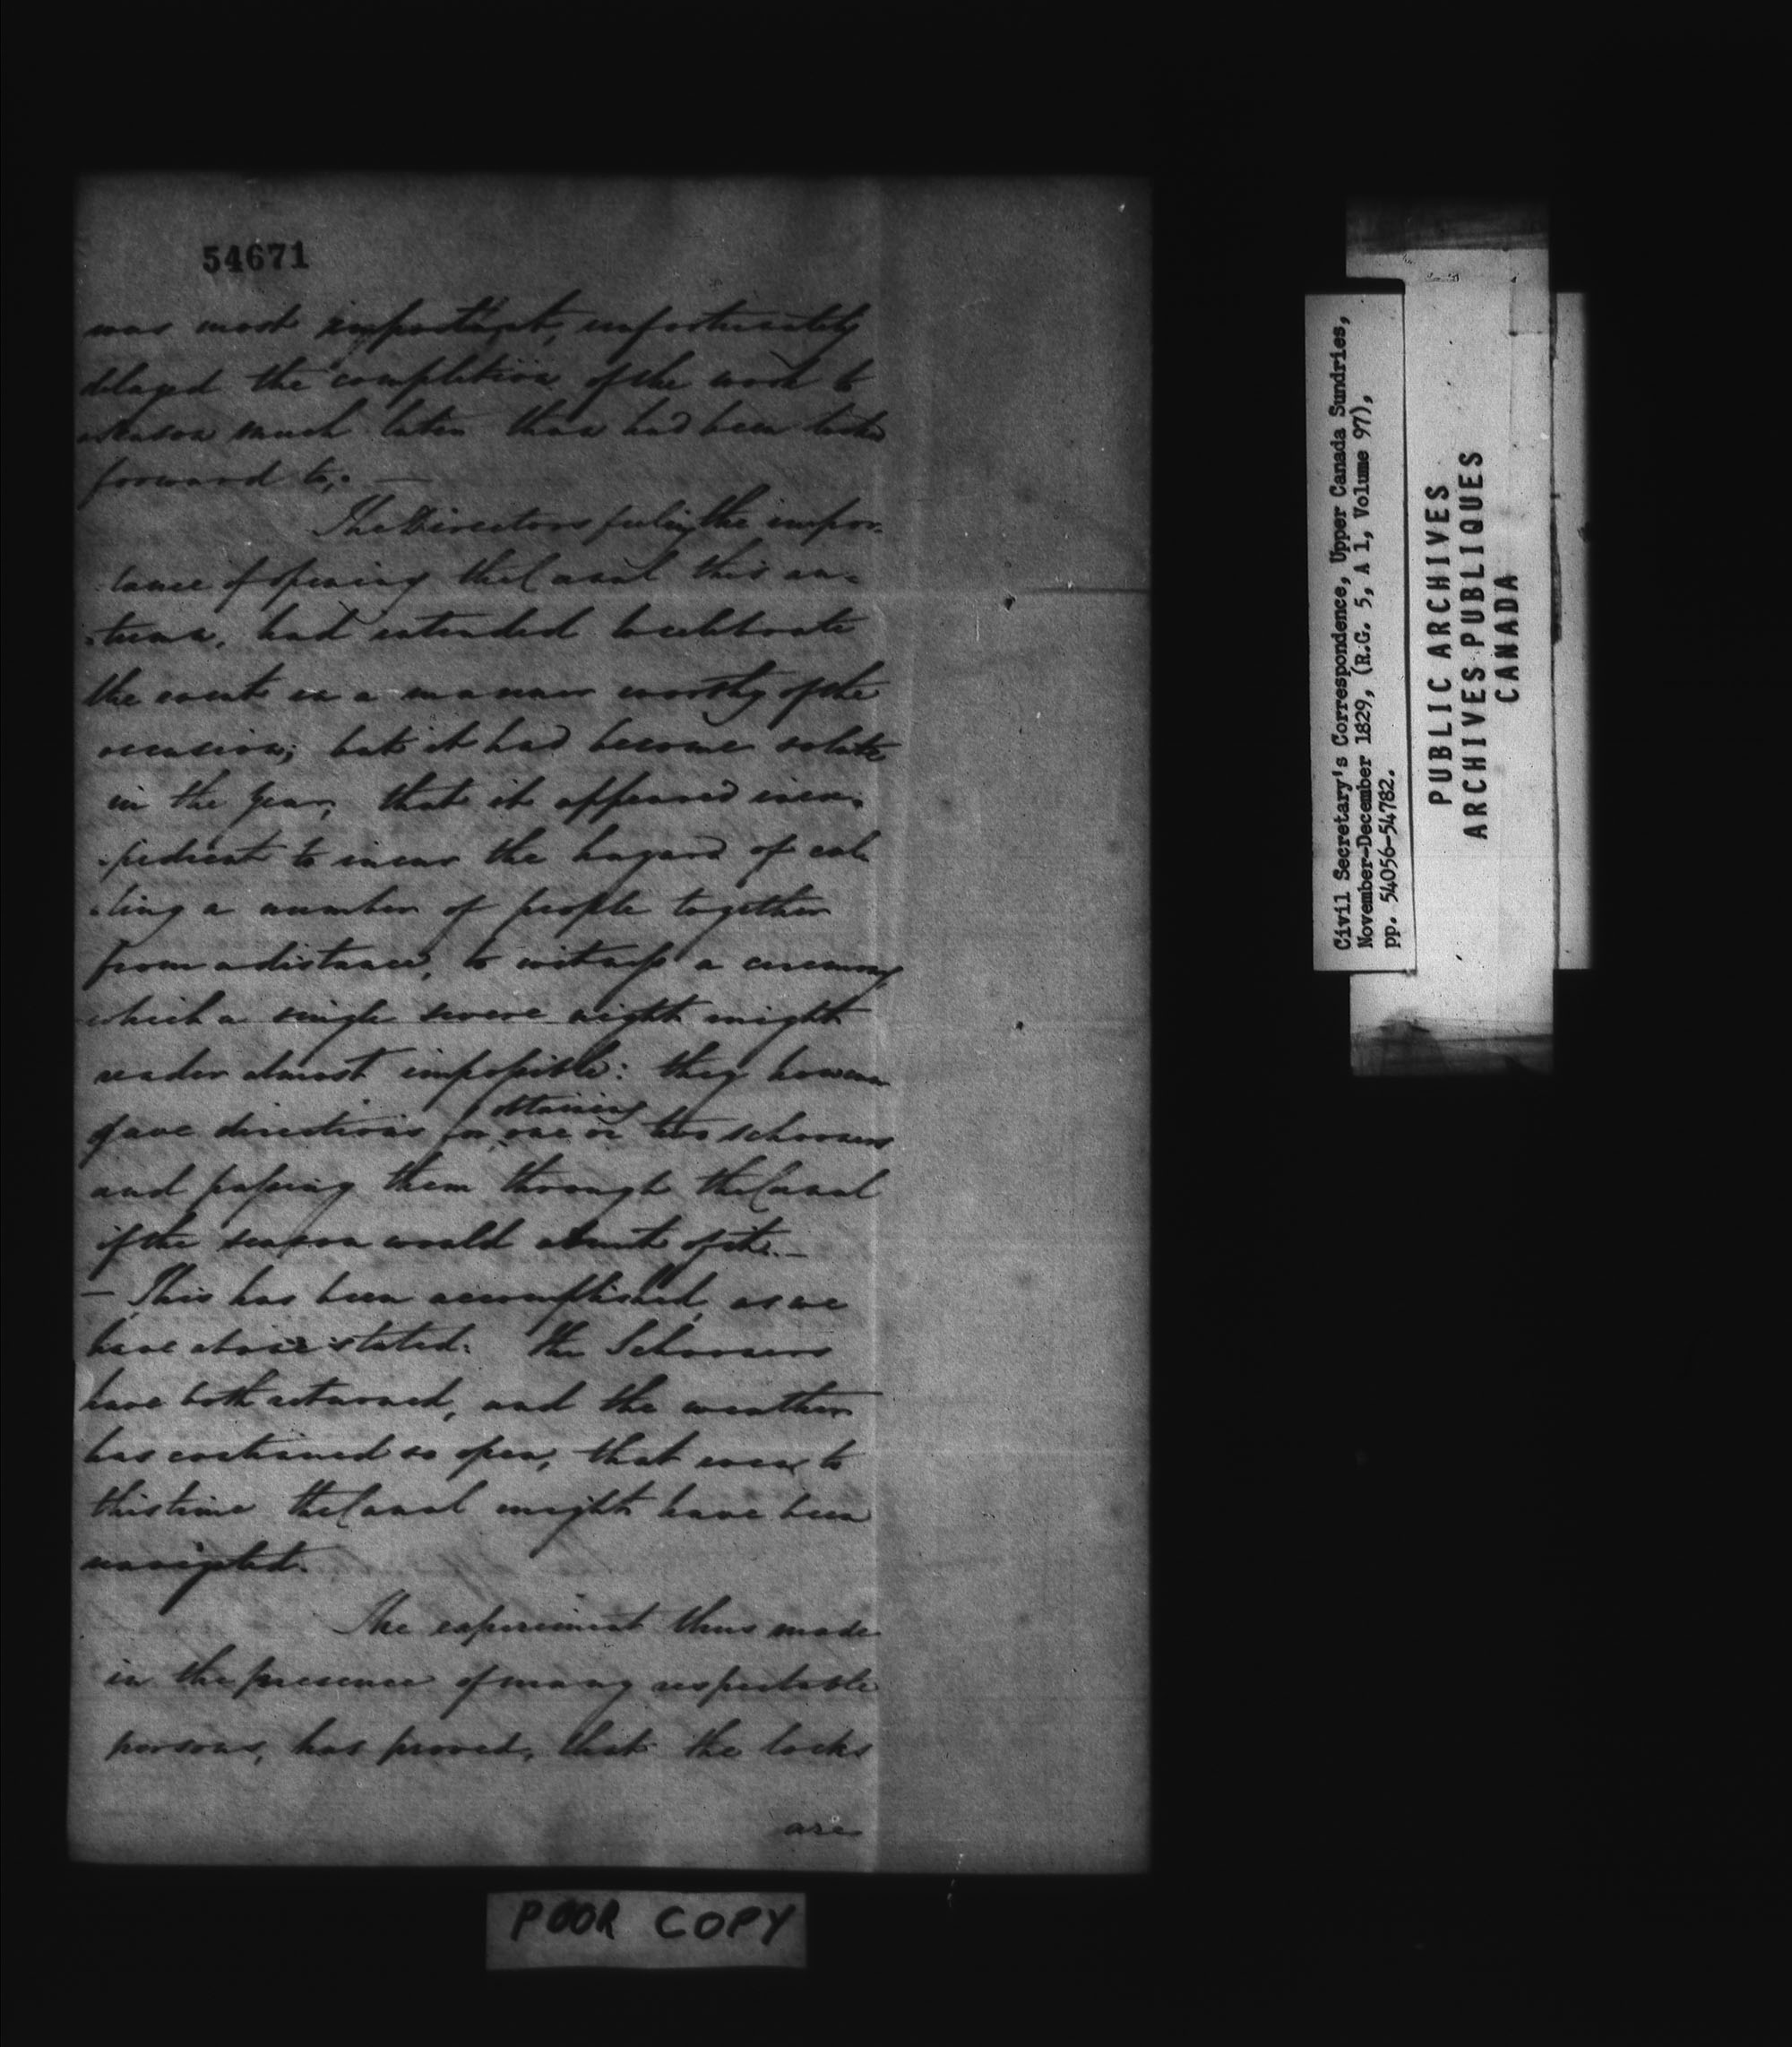 54671
was most important, unfortunately
delayed the completion of the work to
a season much later than had been looked
forward to,. —
The Directors feeling the impor-
-tance of opening the Canal this au-
-tumn, had intended to celebrate
the event in a manner worthy of the
occasion; but it had become so late
in the year, that it appeared inex-
-pedient to incur the hazard of cal-
-ling a number of people together
from a distance, to witness a ceremony
which a single severe night might
render almost impossible: they however
obtaining
gave directions for one or two schooners
and passing them through the Canal
if the season would admit of it. —
— This has been accomplished, as we
have above stated. The Schooners
have both returned, and the weather
has continued so open, that even to
this time the Canal might have been
navigated.
The experiment thus made
in the presence of many respectable
persons, has proved, that the locks
are
POOR COPY
Civil Secretary's Correspondence, Upper Canada Sundries,
November-December 1829, (R.G. 5, A 1, Volume 97),
pp. 54056-54782.
PUBLIC ARCHIVES
ARCHIVES PUBLIQUES
CANADA